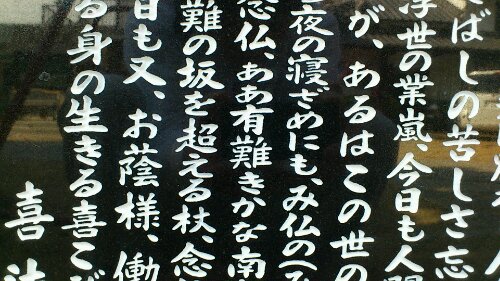 ばしの苦しさ忘
浮世の業嵐、今日も人間
が、あるはこの世の
夜の寝ざめにも、み仏の
念仏、ああ有難きかな南
難の坂を超える杖、念
日も又、お蔭様、働
る身の生きる喜こび
喜